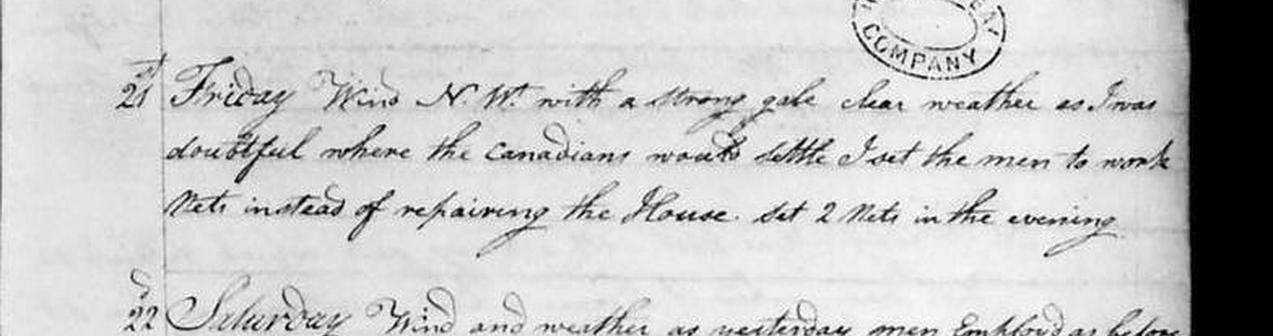 COMPANY
21st Friday Wind N. Wt. with a strong gale clear weather as I was
doubtful where the Canadians would settle I set the men to work
Nets instead of repairing the House. Set 2 Nets in the evening
22d Saturday Wind and weather as yesterday men Employd as before